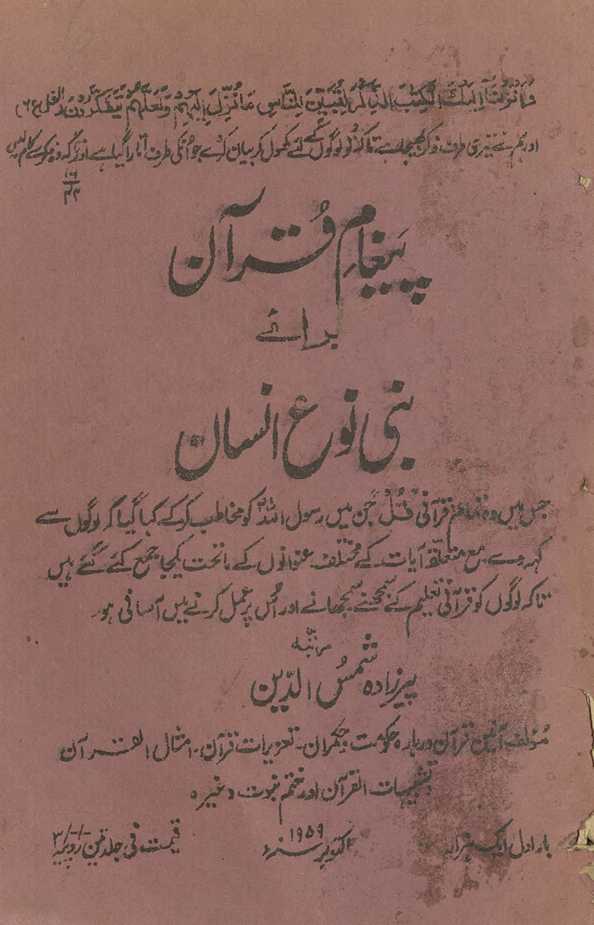 وَاَنْزَلْنَآ اِلَيْكَ الْكِتٰبَ الذِّكْرَ لِتُبَيِّنَ لِلنَّاسِ مَا نُزِّلَ اِلَيْهِمْ وَلَعَلَّهُمْ يَتَفَكَّرُوْنَ (النحل ع ٦)
اور ہم نے تیری طرف ذکر بھیجا ہے تاکہ تو لوگوں کے لئے کھول کر بیان کر دے جو انکی طرف اتارا گیا ہے اور تاکہ وہ فکر سے کام لیں
۱۶
۴۴
پیغامِ قرآن
برائے
بنی نوع انسان
جس میں وہ تمام قرآنی قُلْ جن میں رسول اللہؐ کو مخاطب کرکے کہا گیا کہ لوگوں سے
کہہ دے۔ مع متعلقہ آیات کے مختلف عنوانوں کے ماتحت یکجا جمع کئے گئے ہیں
تاکہ لوگوں کو قرآنی تعلیم کے سمجھنے سمجھانے اور اُس پر عمل کرنے میں آسانی ہو۔
مرتبہ
پیرزادہ شمسُ الدّین
مؤلف آئین قرآن دربارہ حکومت و حکمران۔ تعزیرات قرآن۔ امثال القرآن
تشبیہات القرآن اور ختم نبوت وغیرہ
بار اول ایک ہزار
اکتوبر سنہ ۱۹۵۹ء
قیمت فی جلد تین روپیہ ۳/-/-